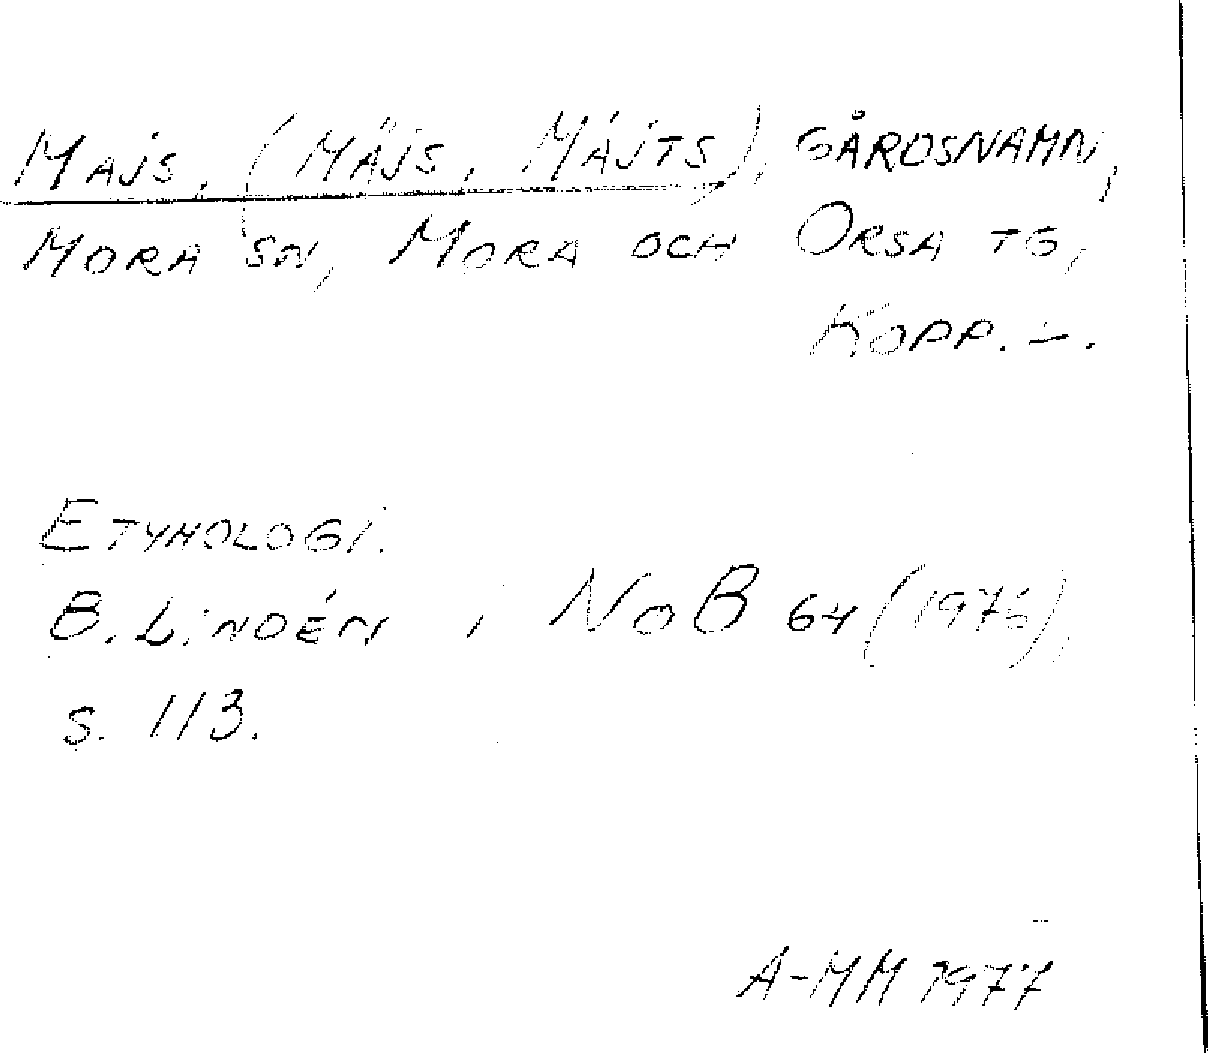 MAJS, (MÄJS, MÁJTS), GÅRDSNAMN,
MORA SN, MORA OCH ORSA TG,
KOPP. L.
ETYMOLOGI.
B. LINDÉN i NoB 64 (1976),
S. 113.
A-MM 1977